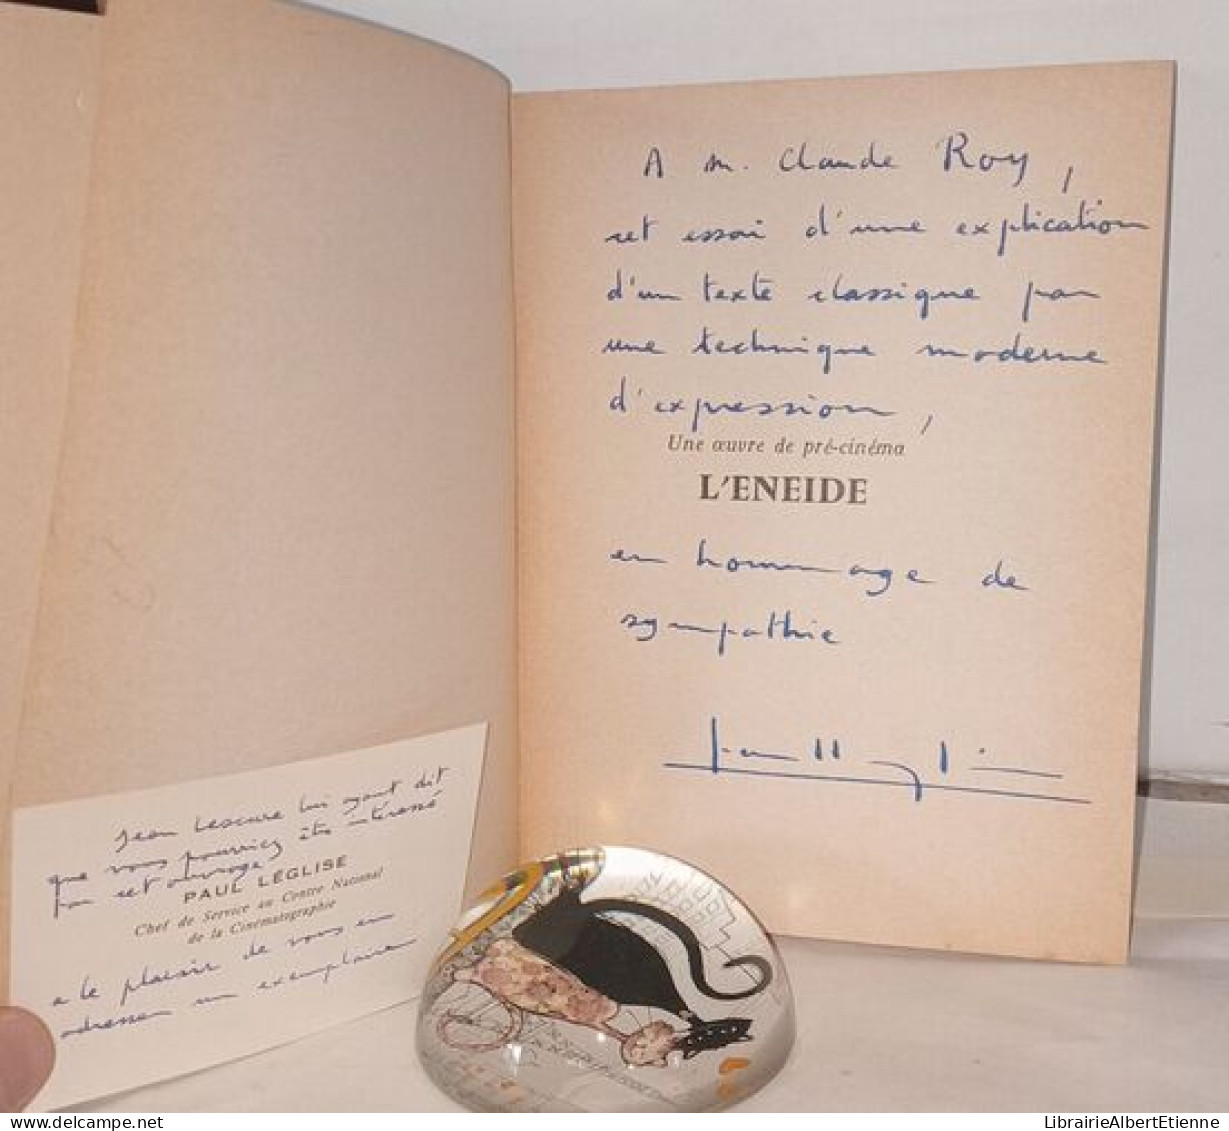 A M. Claude Roy,
cet essai d'une explication
d'un texte classique par
une technique moderne
d'expression,
Une œuvre de pré-cinéma
L'ENEIDE
en hommage de
sympathie
Jean Lescure lui ayant dit
que vous pourriez être intéressé
par cet ouvrage,
PAUL LÉGLISE
Chef de Service au Centre National
de la Cinématographie
a le plaisir de vous en
adresser un exemplaire
delcampe.net
LibrairieAlbertEtienne